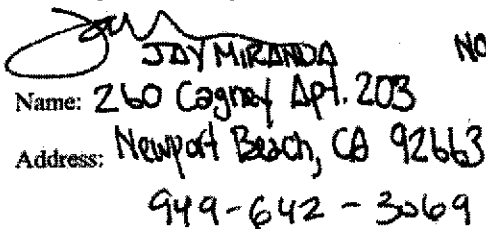 JAY MIRANDA NO
Name: 260 Cagney Apt. 203
Address: Newport Beach, CA 92663
949-642-3069